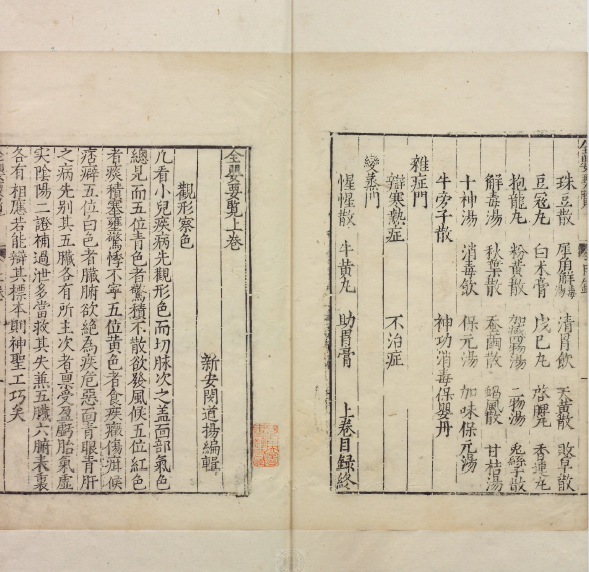 珠豆散 犀角解毒湯 清胃飲 天黃散 散
豆寇丸 白朮膏 戊巳丸 啓脾丸 香連丸
抱龍丸 粉黃散 加減瀉湯 二物湯 兎絲子散
解毒湯 秋葉散 蚕繭散 鵝風散 甘桔湯
十神湯 消毒飲 保元湯 加味保元湯
牛旁子散 神功消毒保嬰丹
雜症門
辯寒熱症 不治症
變蒸門
惺惺散 牛黃丸 助胃膏 上卷目録終
全嬰要覧上卷
新安閔道揚編輯
觀形察色
凢看小兒疾病先觀形色而切脉次之盖面部氣色
總見而五位青色者驚積不散欲發風候五位紅色
者痰積塞壅驚悸不寧五位黃色者食疾癥傷癖候
痞癖五位白色者臓腑欲絶為疾危惡面青眼青肝
之病先別其五臓各有所主次者禀受盈虧胎氣虛
实陰陽二證補過泄多當救其失兼五臓六腑表裏
各有相應若能辯其標本則神聖工巧矣